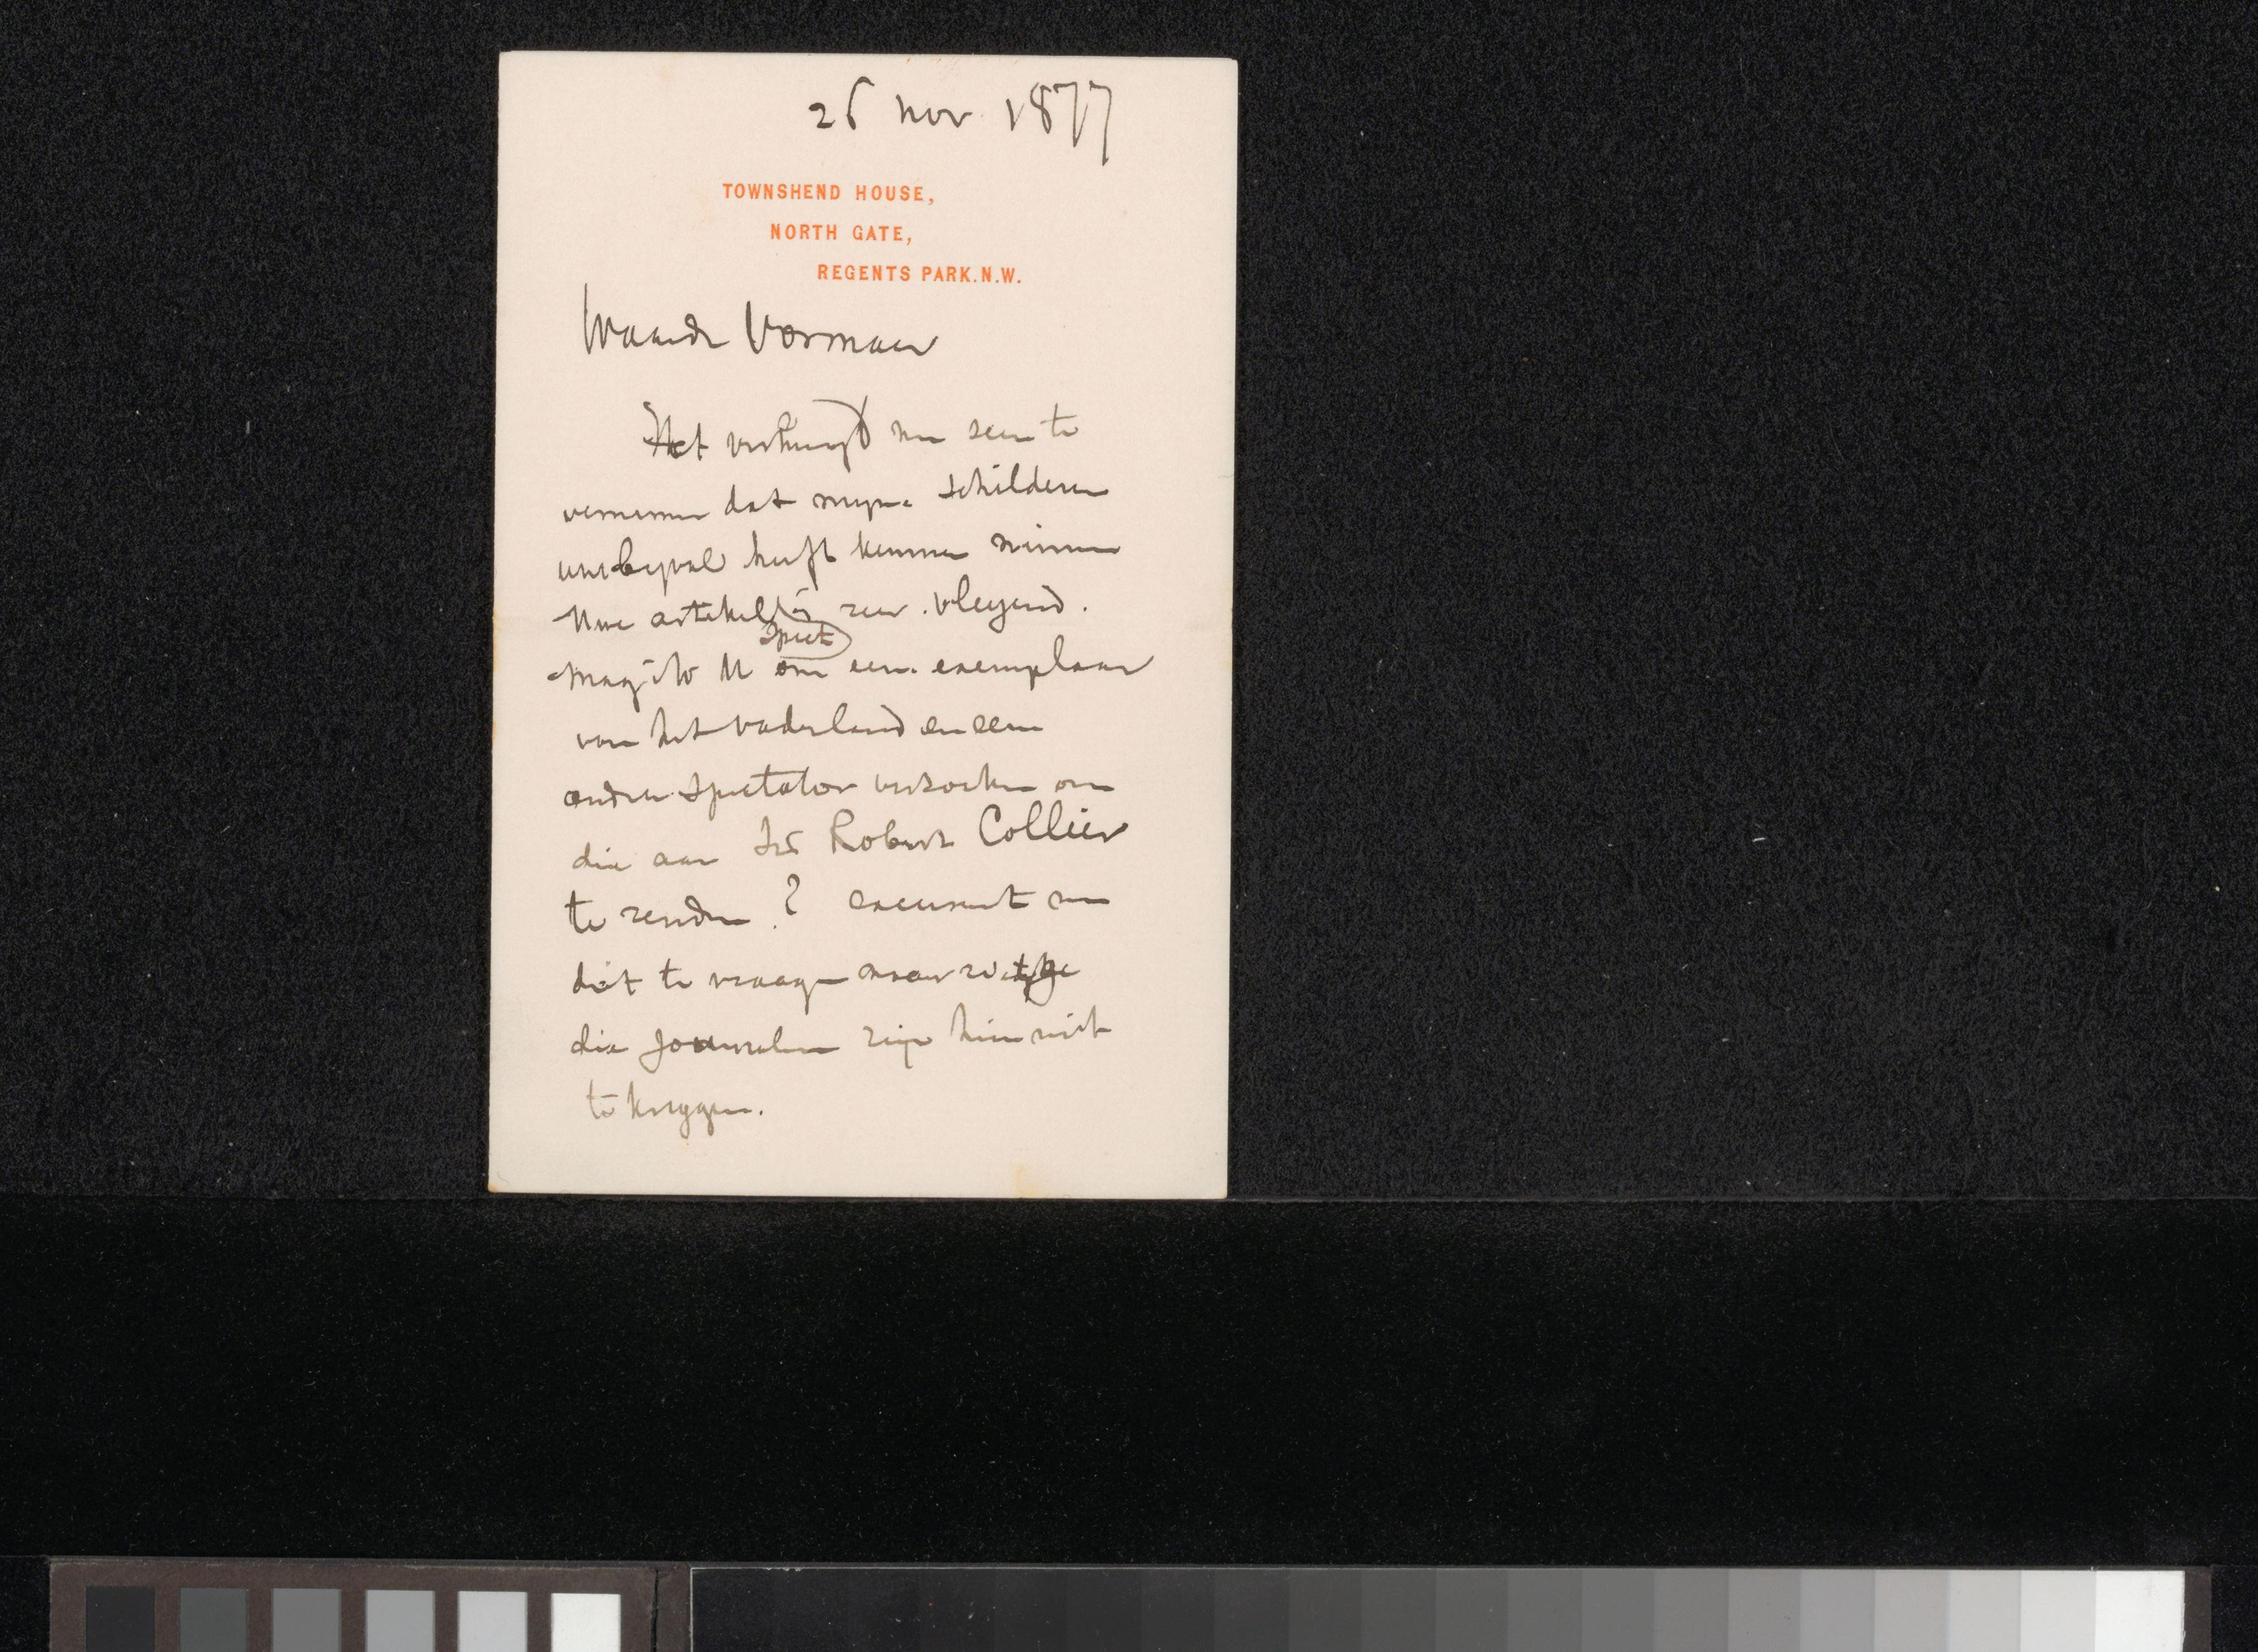 26 nov 1877
TOWNSHEND HOUSE,
NORTH GATE,
REGENTS PARK.N.W.
Waarde Vosmaer
Het verheugd me zeer te
vernemen dat myne schilderen
uwe byval heeft kunnen winnen
Uwe artikel is zeer vleyend.
Spect
mag ik U om een exemplaar
van het vaderland en een
ander Spectator versoeken om
die aan Sir Robert Collier
te zenden ? excuseert me
dit te vraagen maar
die journalen zijn hier niet
te krygen.